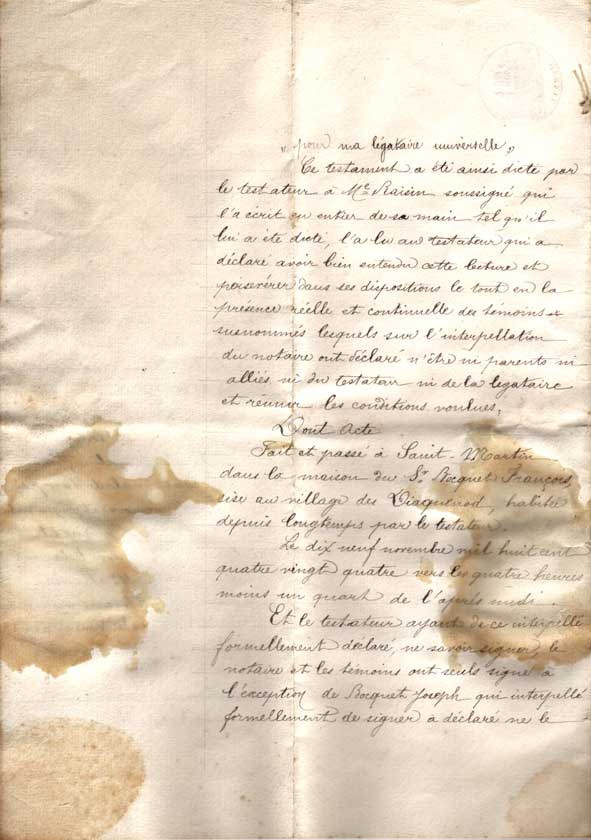 "pour ma légataire universelle"
Ce testament a été ainsi dicté par
le testateur à Me Raisin soussigné qui
l'a écrit en entier de sa main tel qu'il
lui a été dicté, l'a lu au testateur qui a
déclaré avoir bien entendu cette lecture et
persévérer dans ses dispositions le tout en la
présence réelle et continuelle des témoins
susnommés lesquels sur l'interpellation
du notaire ont déclaré n'être ni parents ni
alliés ni du testateur ni de la légataire
et réunir les conditions voulues.
Dont Acte
Fait et passé à Saint-Martin
dans la maison du Sr Bocquet François,
sise au village des habitée
depuis longtemps par le testateur.
Le dix neuf novembre mil huit cent
quatre vingt quatre vers les quatre heures
moins un quart de l'après midi.
Et le testateur ayant de ce interpellé
formellement déclaré, ne savoir signer, le
notaire et les témoins ont seuls signé à
l'éxception de Bocquet Joseph qui interpellé
formellement de signer à déclaré ne le